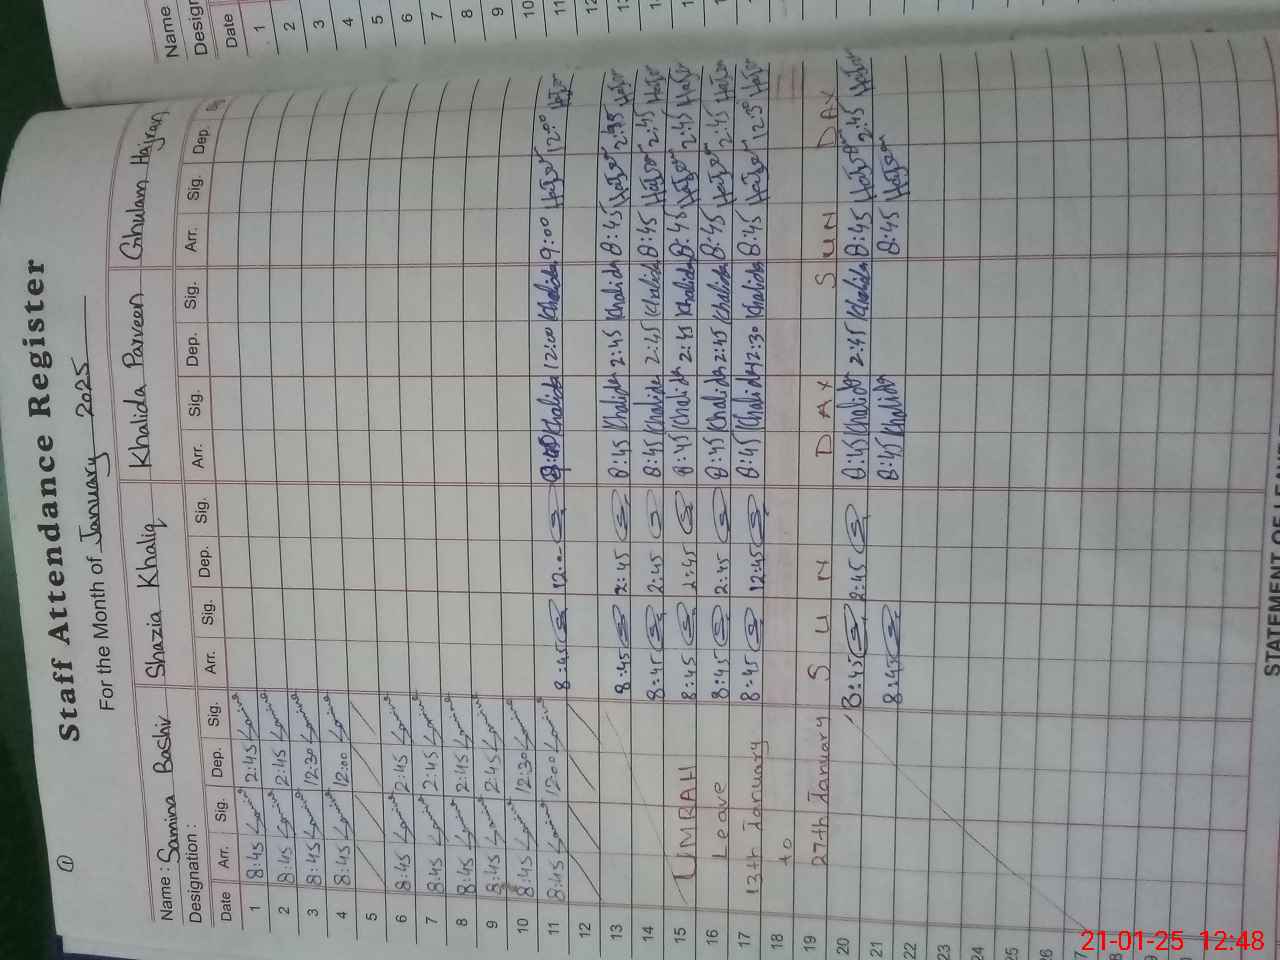 ①
Staff Attendance Register
For the Month of January 2025
Name : Samina Bashir Shazia Khaliq Khalida Parveen Ghulam Hajran
Designation :
Date Arr. Sig. Dep. Sig. Arr. Sig. Dep. Sig. Arr. Sig. Dep. Sig. Arr. Sig. Dep.
1 8:45 Samina 2:45 Samina
2 8:45 Samina 2:45 Samina
3 8:45 Samina 12:30 Samina
4 8:45 Samina 12:00 Samina
5
6 8:45 Samina 2:45 Samina
7 8:45 Samina 2:45 Samina
8 8:45 Samina 2:45 Samina
9 8:45 Samina 2:45 Samina
10 8:45 Samina 12:30 Samina
11 8:45 Samina 12:00 Samina 8:45 12:00 Khalida 12:00 Khalida 9:00 12:00
12
13 8:45 2:45 8:45 Khalida 2:45 Khalida 8:45 2:45
14 8:45 2:45 8:45 Khalida 2:45 Khalida 8:45 2:45
15 UMRAH 8:45 2:45 8:45 Khalida 2:45 Khalida 8:45 2:45
16 Leave 8:45 2:45 8:45 Khalida 2:45 Khalida 8:45 2:45
17 13th January 8:45 12:45 8:45 Khalida 12:30 Khalida 8:45 12:30
18 to
19 27th January S U N D A Y S U N D A Y
20 8:45 2:45 8:45 Khalida 2:45 Khalida 8:45 2:45
21 8:45 8:45 Khalida 8:45
22
23
24
25
26
STATEMENT OF LEAVE
Name
Design
Date
1
2
3
4
5
6
7
8
9
10
11
12
21-01-25 12:48